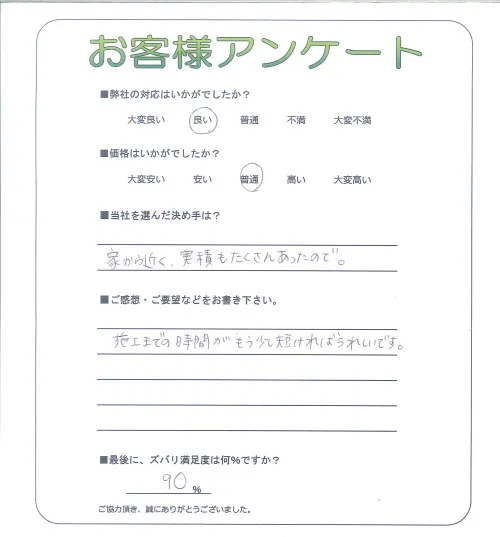 お客様アンケート
■弊社の対応はいかがでしたか？
大変良い 良い 普通 不満 大変不満
■価格はいかがでしたか？
大変安い 安い 普通 高い 大変高い
■当社を選んだ決め手は？
家から近く、実積もたくさんあったので。
■ご感想・ご要望などをお書き下さい。
施工までの時間がもう少し短ければうれいです。
■最後に、ズバリ満足度は何％ですか？
90 %
ご協力頂き、誠にありがとうございました。